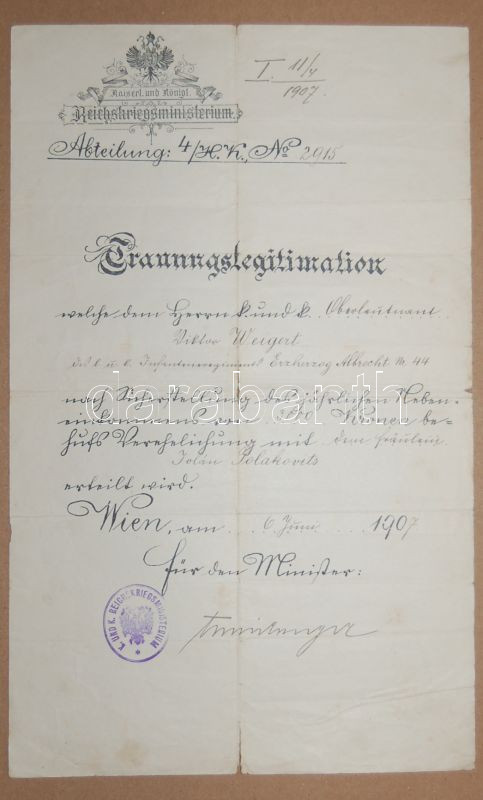 I. 11/4
1907.
Kaiserl. und Königl.
Reichskriegsministerium.
Abteilung: 4/H.K., No 2915
Trauungslegitimation
welche dem Herrn k. und k. Oberleutnant
Viktor Weigert
des k. u. k. Infanterieregiments Erzherzog Albrecht Nr. 44
nach Sicherstellung des jährlichen Neben-
einkommens von Kronen be-
hufs Verehelichung mit dem Fräulein
Jolán Polakovits
erteilt wird.
Wien, am 6 Juni 1907
Für den Minister:
K. UND K. REICHSKRIEGSMINISTERIUM
darabanth